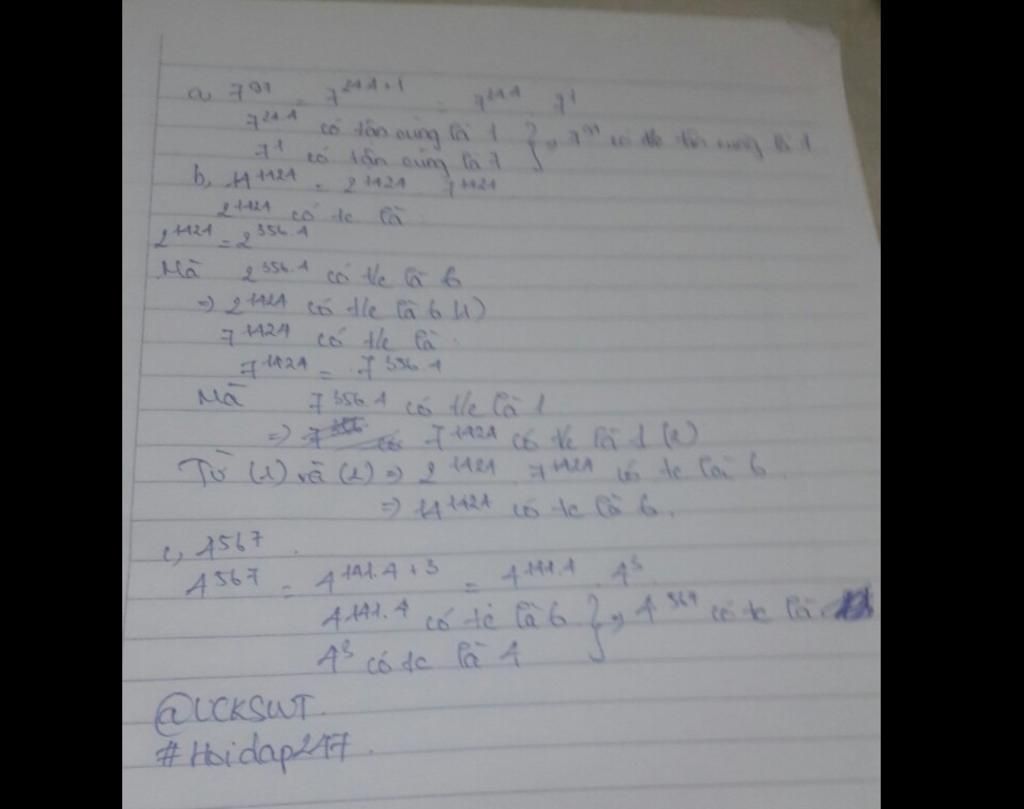 a, 7^97 = 7^24.4+1 = 7^24.4 . 7^1
7^24.4 có tận cùng là 1 } => 7^97 có tận cùng là
7^1 có tận cùng là 7
b, 14^1424 = 2^1424 . 7^1424
2^1424 có tc là
2^1424 = 2^356.4
Mà 2^356.4 có t/c là 6
=> 2^1424 có t/c là 6 (1)
7^1424 có t/c là
7^1424 = 7^356.4
Mà 7^356.4 có t/c là 1
=> 7^1424 có t/c là 1 (2)
Từ (1) và (2) => 2^1424 . 7^1424 có tc là 6
=> 14^1424 có tc là 6.
c, 4^567
4^567 = 4^141.4+3 = 4^141.4 . 4^3
4^141.4 có tc là 6 } => có tc là
4^3 có tc là 4
@UCKSWT
#Hoidap247